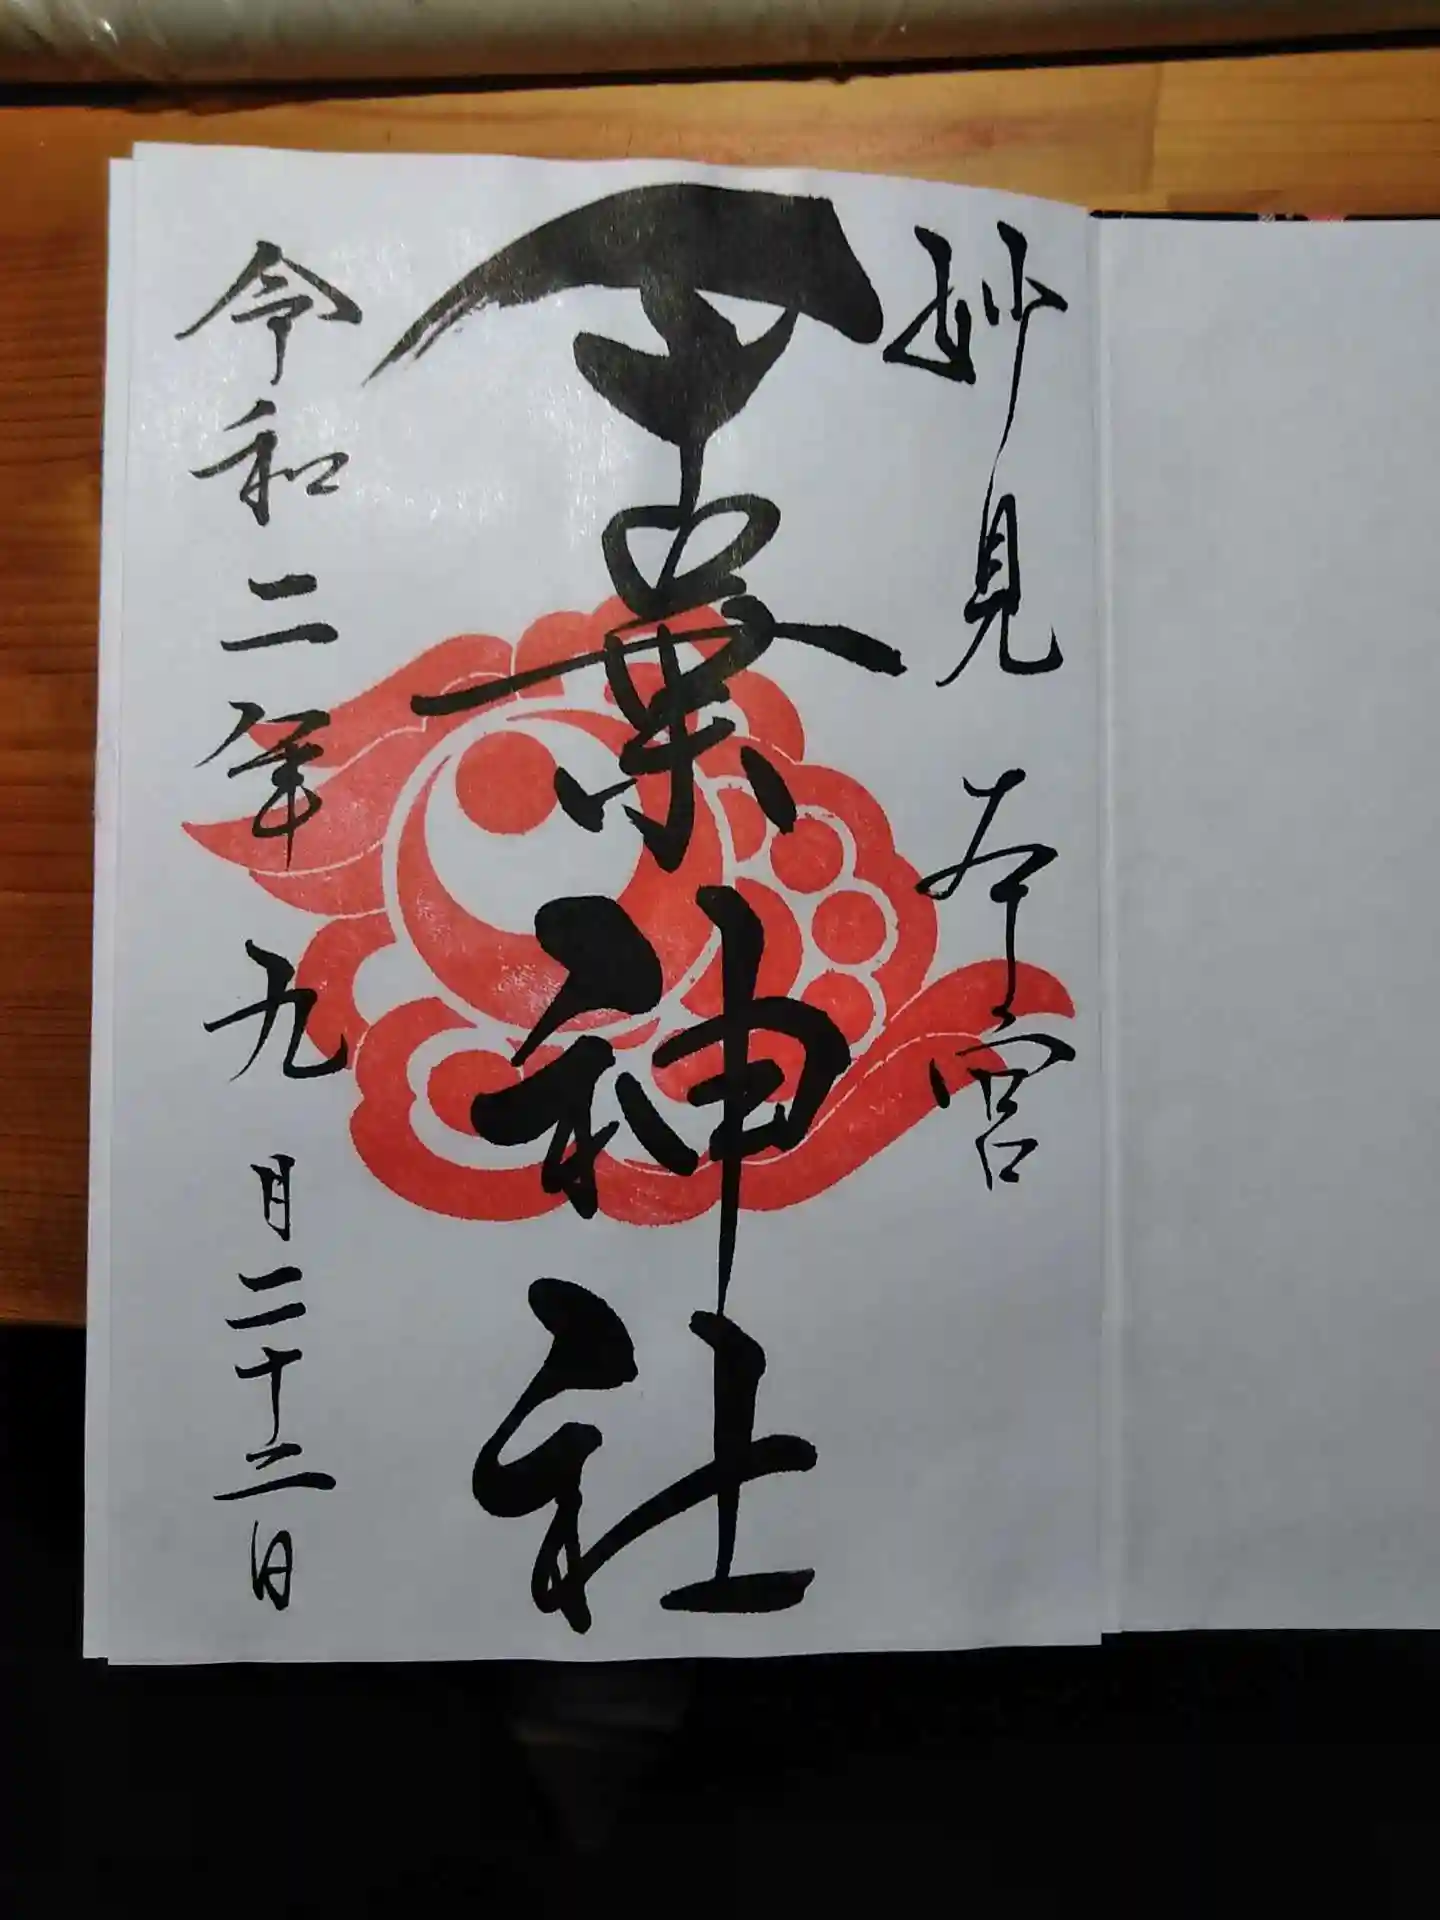 妙見本宮
千葉神社
令和二年九月二十三日